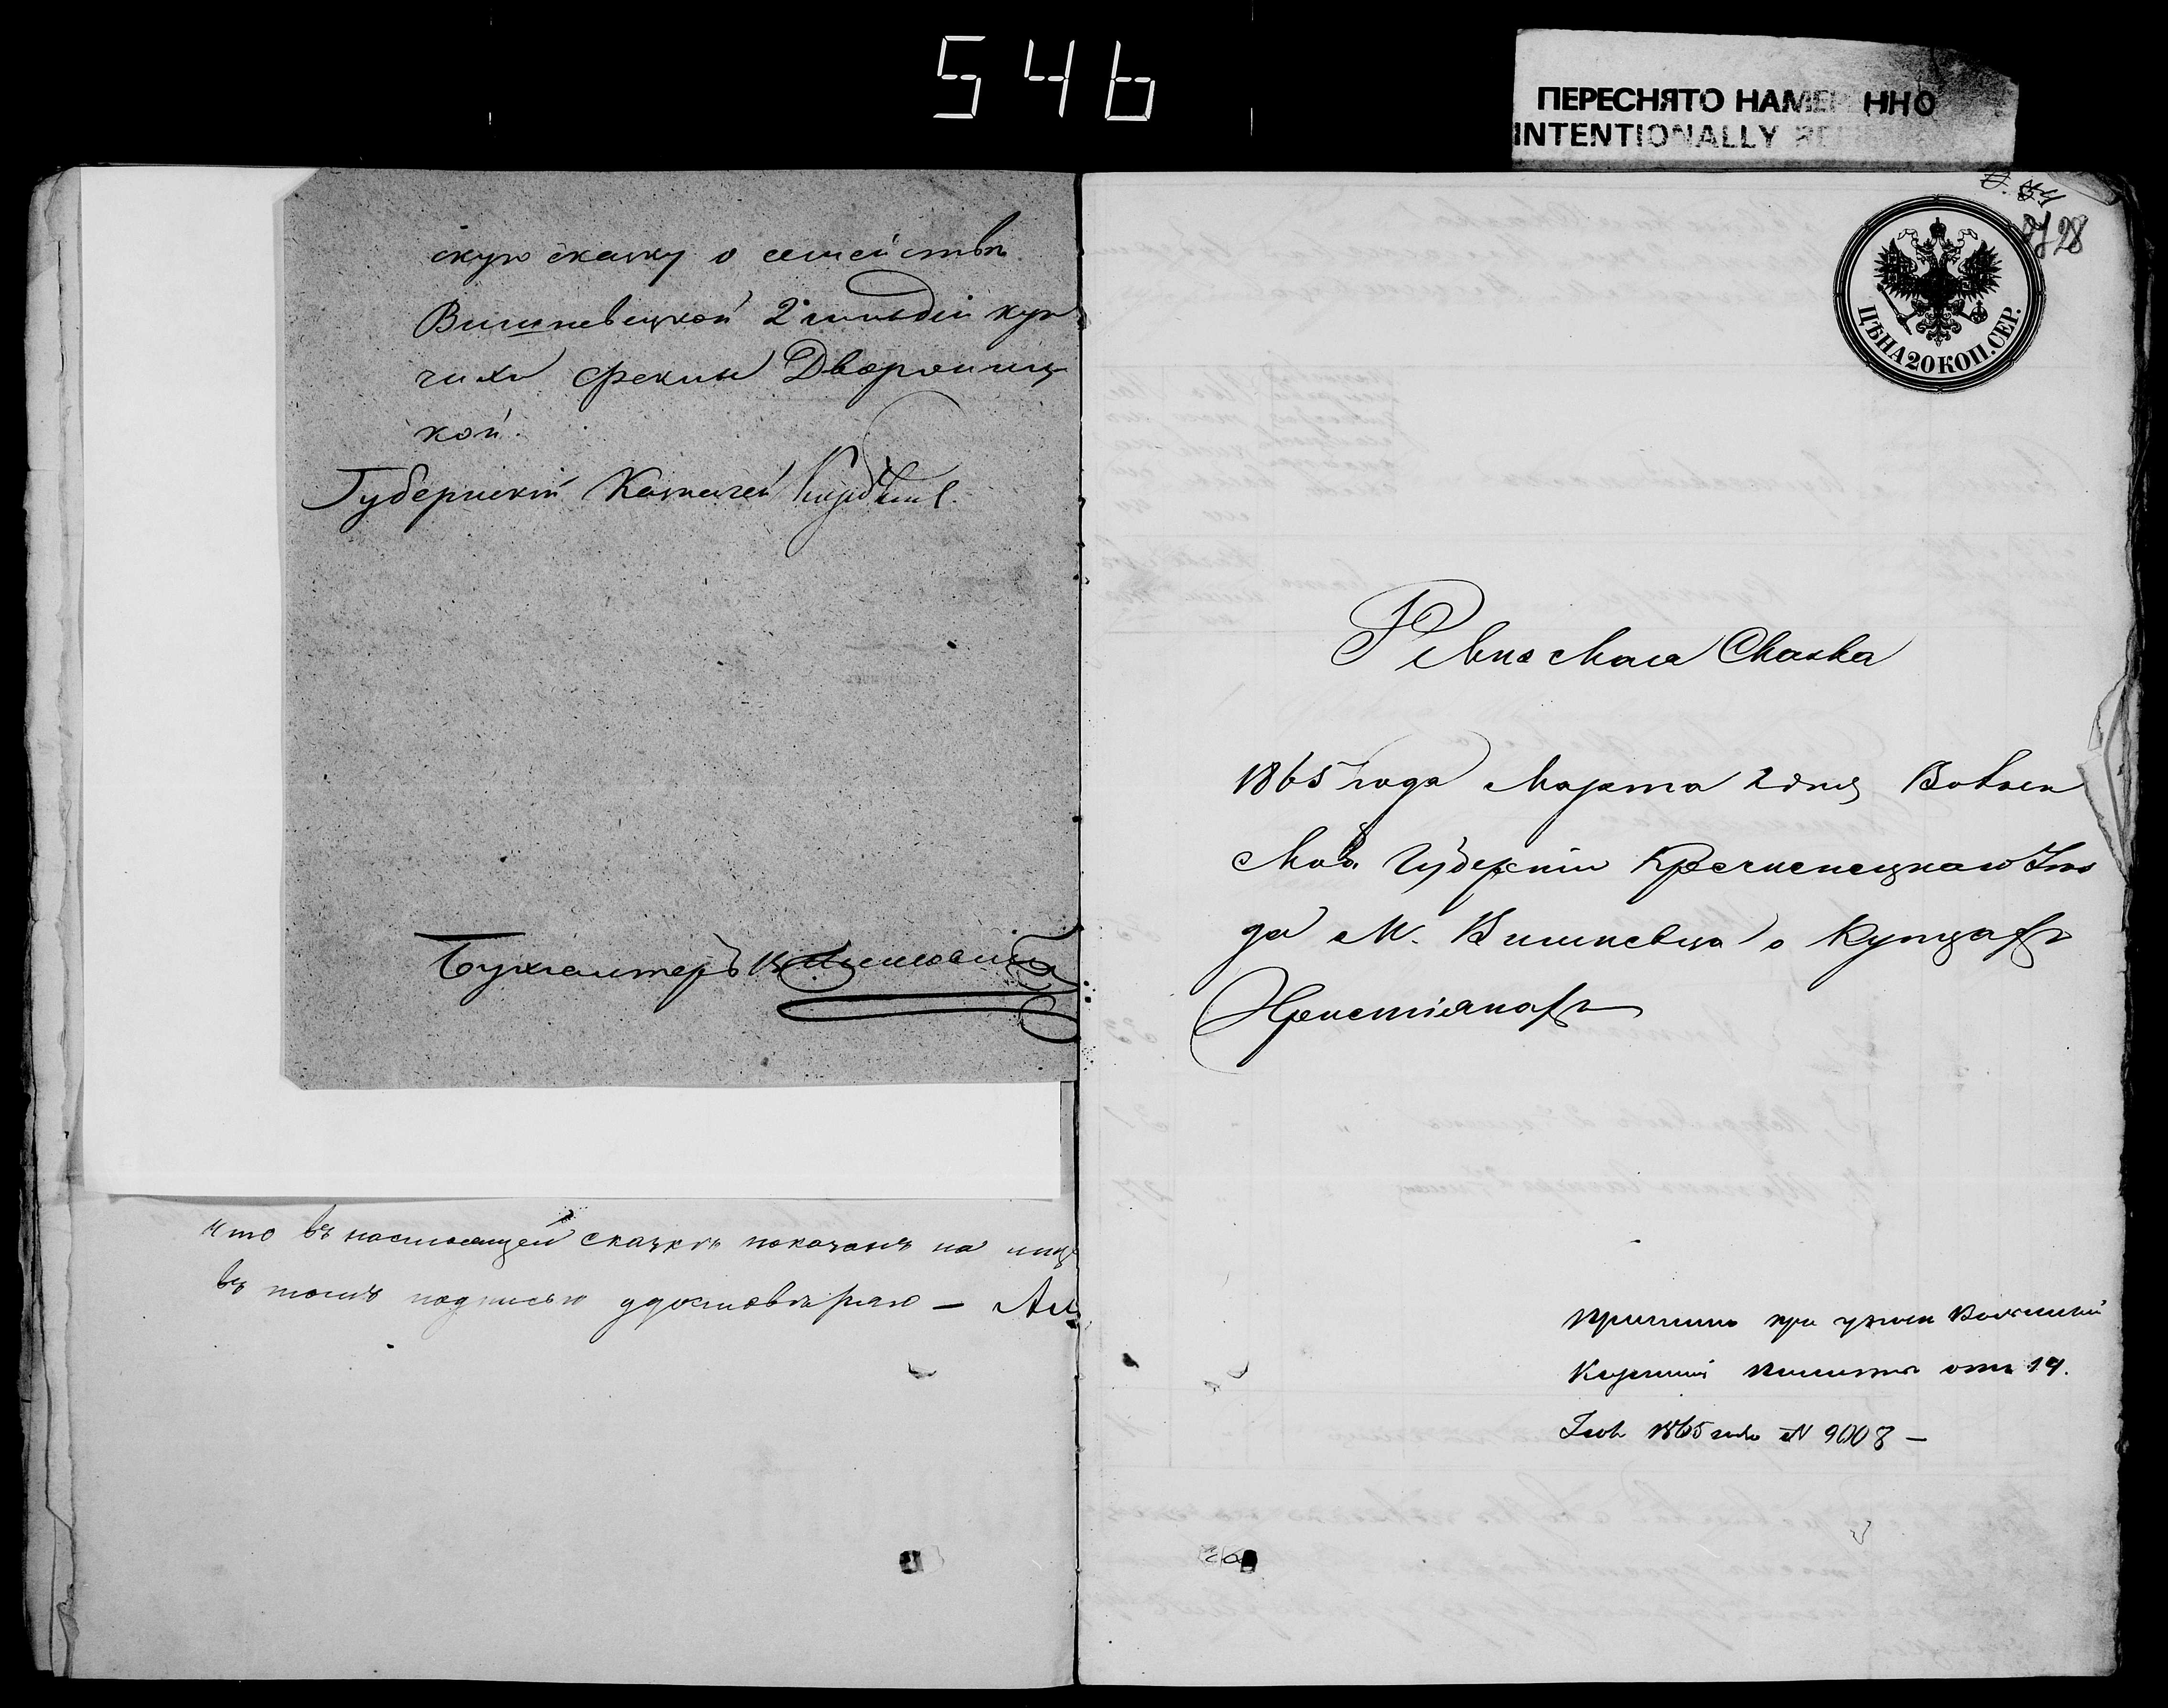 546
ПЕРЕСНЯТО НАМЕ ННО
INTENTIONALLY
28
ЦѢНА 20 КОП. СЕР.
скую сказку о семействѣ
Вишневецкой 2й гильдіи куп
чихи Фейги Дворониц
кой.
Губернскій Казначей
Бухгалтеръ
что въ настоящей сказкѣ показанъ на лицо
въ томъ подписью удостовѣряю —
Ревизская Сказка
1865 года Марта 2 дня Волын
ской Губерніи Кременецкаго Уѣз
да М. Вишневца о Купцахъ
Христіанахъ
при указѣ Волынской
Казенной Палаты отъ 19.
1865 года № 9008 —